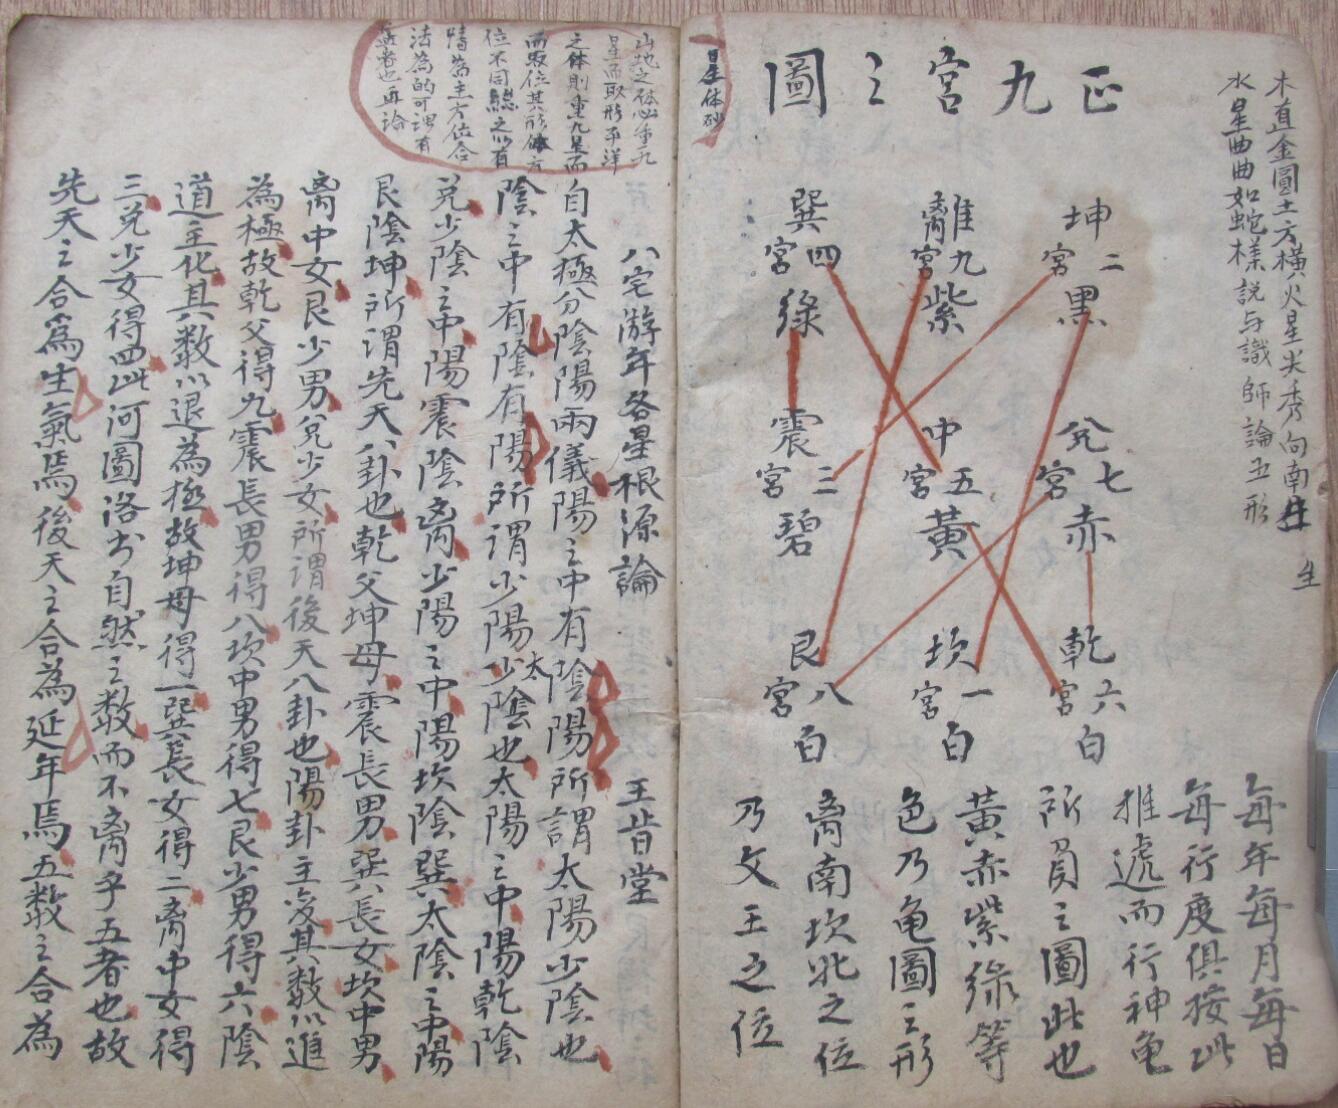 正九宮之圖
木直金圓土方橫火星尖秀向南生
水星曲曲如蛇樣說与識師論五形
生
坤二宮黑
兌七宮赤
乾六宮白
離九宮紫
中五宮黃
坎一宮白
巽四宮綠
震三宮碧
艮八宮白
每年每月每日
每行度俱按此
推遞而行神龟
所負之圖此也
黃赤紫綠等
色乃龟圖之形
离南坎北之位
乃文王之位
星体砂
山地之体必重九
星而取形平洋
之体則重九星而
而取位其形体方
位不同總之以有
情為主方位合
法為的可謂有
益者也再論
八宅游年各星根源論 王肯堂
自太極分陰陽兩儀陽之中有陰陽所謂太陽少陰也
陰之中有陰有陽所謂少陽太少陰也太陽之中陽乾陰
兌少陰之中陽震陰离少陽之中陽坎陰巽太陰之中陽
艮陰坤所謂先天八卦也乾父坤母震長男巽長女坎中男
离中女艮少男兌少女所謂後天八卦也陽卦主変其數以進
為極故乾父得九震長男得八坎中男得七艮少男得六陰
道主化其數以退為極故坤母得一巽長女得二离中女得
三兌少女得四此河圖洛书自然之數而不离乎五者也故
先天之合為生氣焉後天之合為延年焉五數之合為